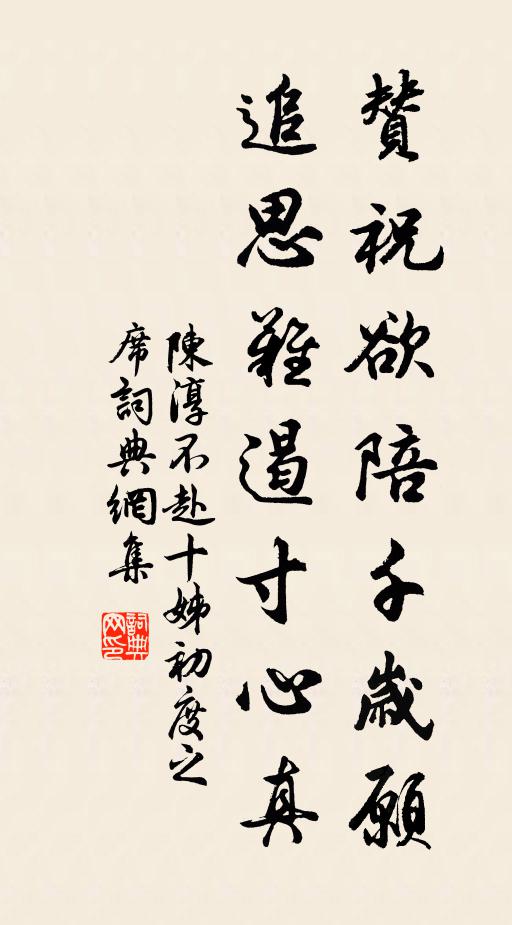 賛祝欲陪千歲願
追思難遏寸心真
陳淳不赴十姊初度之
席詞典網集
詞典网印